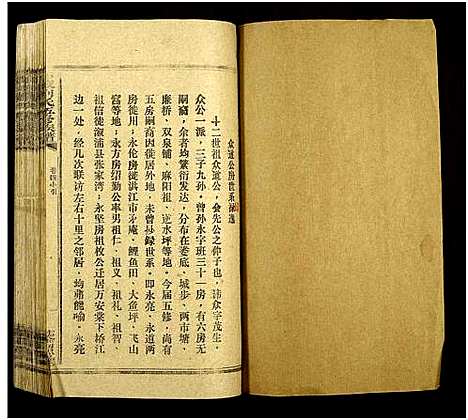 众道公房世系
十二世祖众道公，会先公之仲子也，讳众字茂生，
众公一派，三子九孙，曾孙永字班三十一房，有六房无
嗣裔，余者均繁衍发达，分布在娄底、城步、两市塘、
廉桥、双泉铺、麻阳祖、逆水坪等地，今届五修，尚有
五房嗣裔因徙居外地，未曾抄录世系，即永亮、永道两
房徙川；永伦房徙洪江市矛庵、鲤鱼田、大鱼坪、飞山
宫等地；永方房绍勤公率男祖仁、祖义、祖礼、祖智、
祖信徙溆浦县张家湾；永坚房祖枚公迁居万安棠下桥江
边一处，经几次联访左右十里之邻居，均弗能喻，永亮